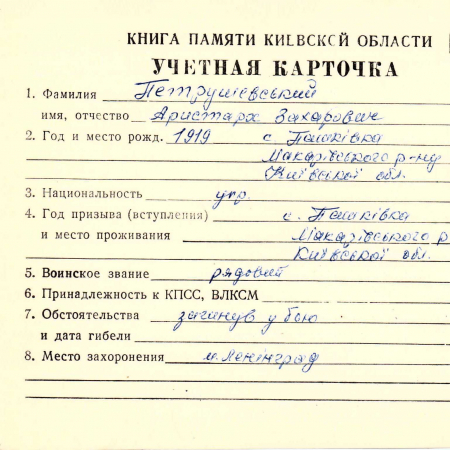 КНИГА ПАМЯТИ КИЕВСКОЙ ОБЛАСТИ
УЧЕТНАЯ КАРТОЧКА
1. Фамилия Петрушевський
имя, отчество Аристарх Захарович
2. Год и место рожд. 1919 с.
Макарівського р-ну
Київської обл.
3. Национальность укр.
4. Год призыва (вступления) с.
и место проживания Макарівського р
Київської обл.
5. Воинское звание рядовий
6. Принадлежность к КПСС, ВЛКСМ
7. Обстоятельства загинув у бою
и дата гибели
8. Место захоронения м. Ленінград